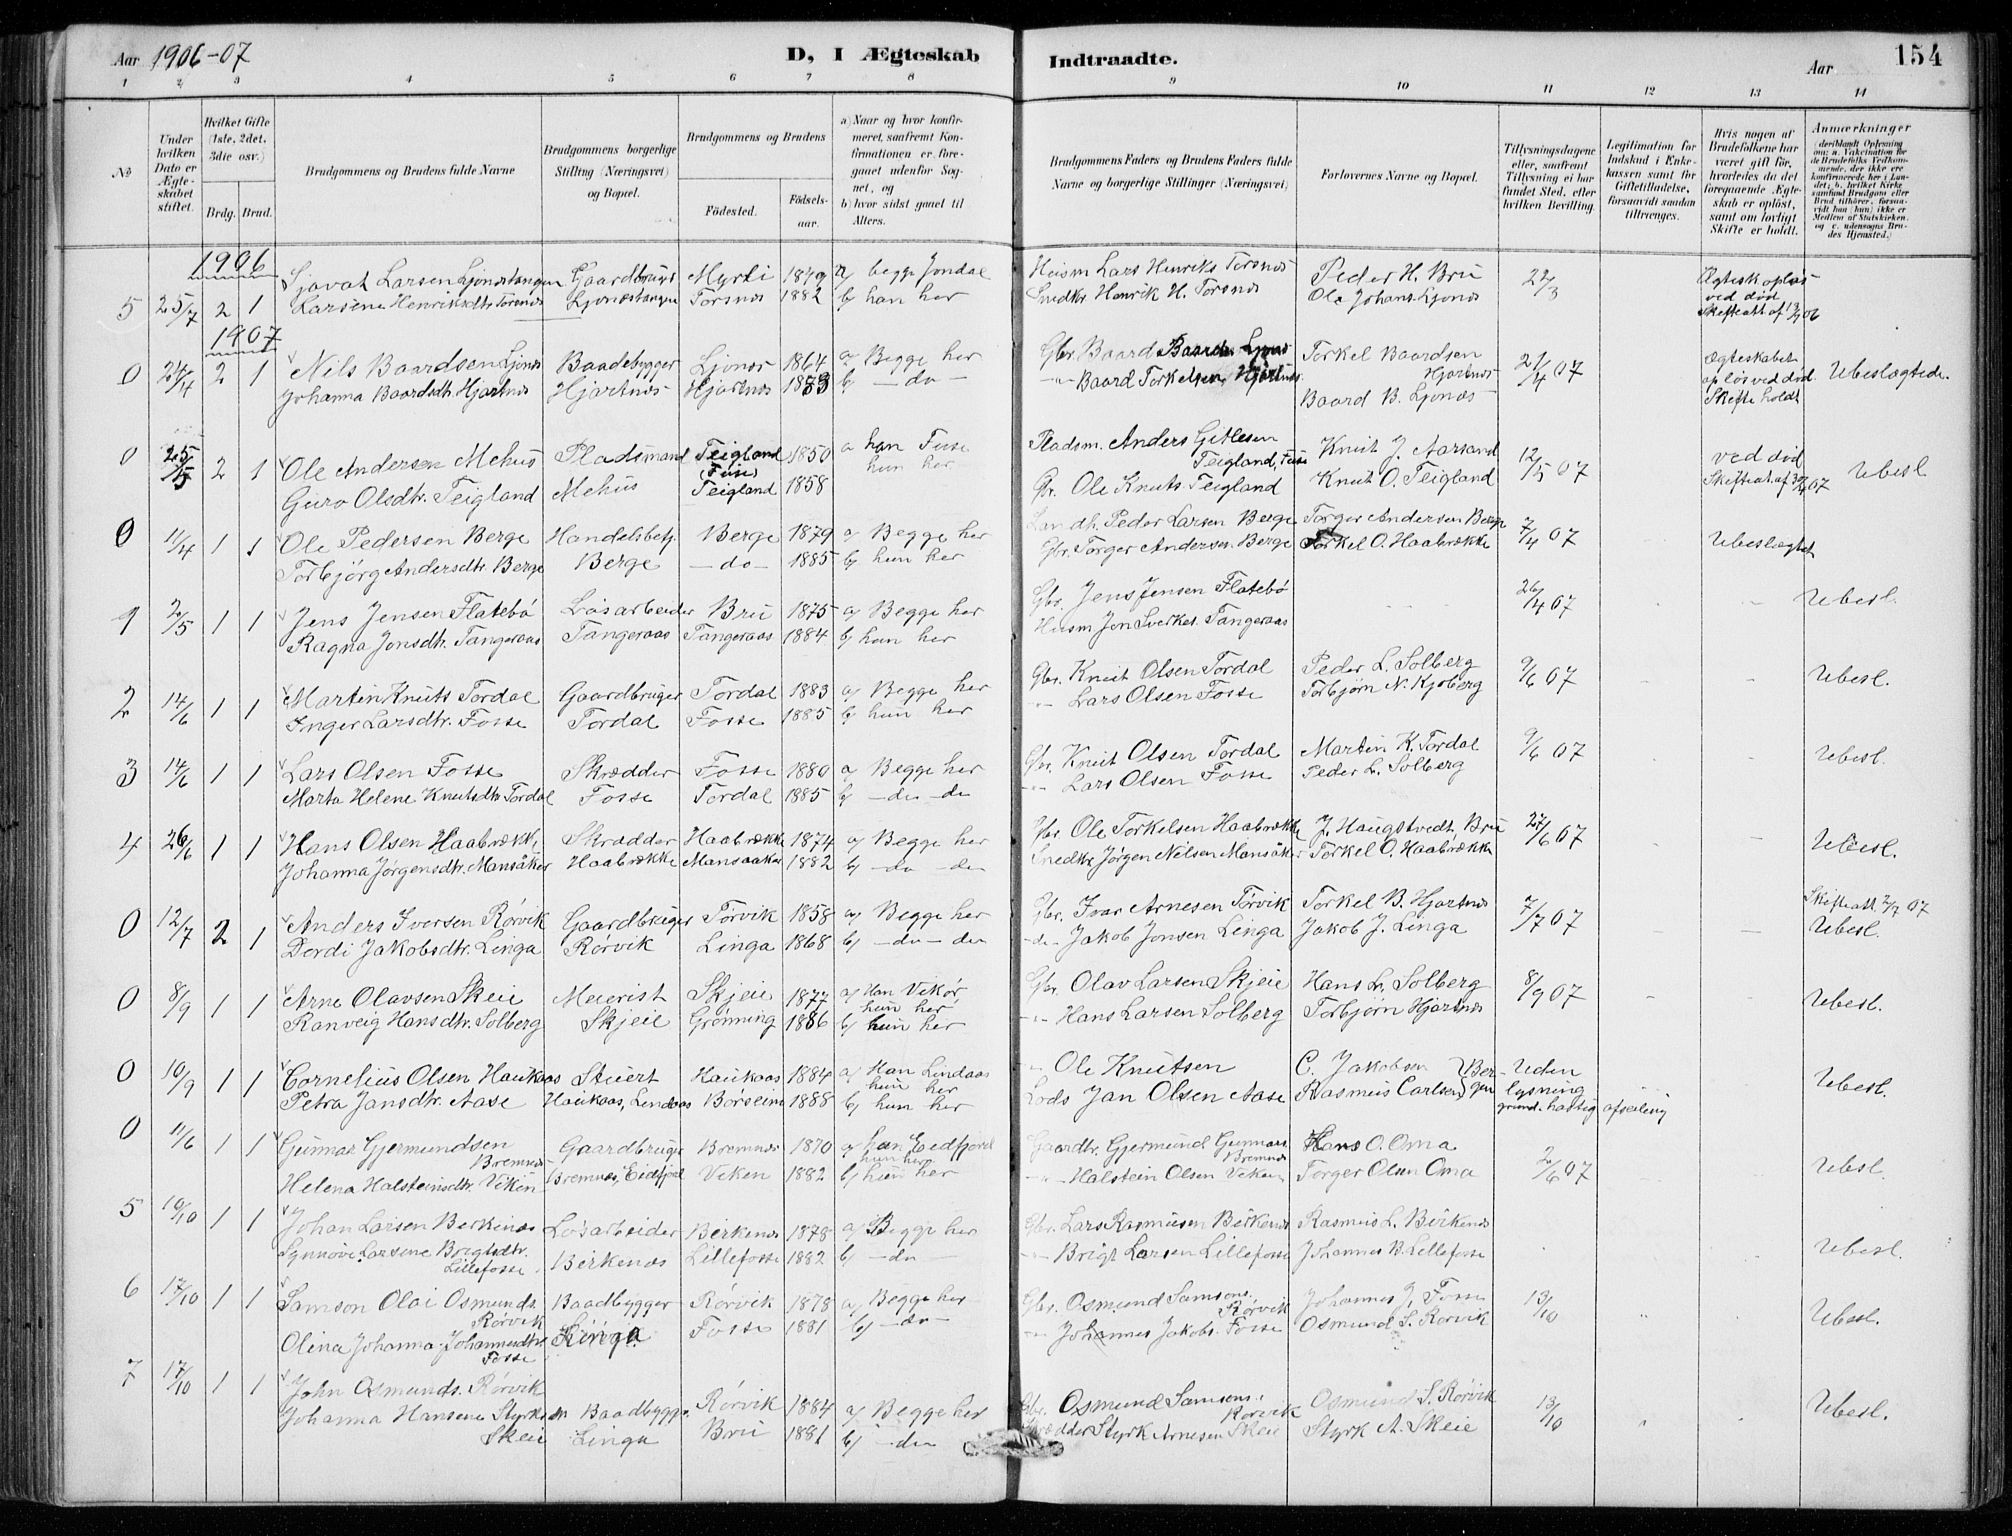 Aar 1906-07
D, I Ægteskab Indtraadte.
Aar 154
1 2 3 4 5 6 7 8 9 10 11 12 13 14
No
Under hvilken Dato er Ægteskabet stiftet.
Hvilket Gifte (1ste, 2det, 3die osv.)
Brdg. Brud.
Brudgommens og Brudens fulde Navne
Brudgommens borgerlige Stilling (Næringsvei) og Bopæl.
Brudgommens og Brudens
Fødested. Fødselsaar.
a) Naar og hvor konfirmeret, saafremt Konfirmationen er foregaaet udenfor Sognet, og
b) hvor sidst gaaet til Alters.
Brudgommens Faders og Brudens Faders fulde Navne og borgerlige Stillinger (Næringsvei)
Forlovernes Navne og Bopæl.
Tillysningsdagene eller, saafremt Tillysning ei har fundet Sted, efter hvilken Bevilling.
Legitimation for Indskud i Enkekassen samt for Giftetilladelse, forsaavidt saadan tiltrænges.
Hvis nogen af Brudefolkene har været gift før, hvorledes da det foregaaende Ægteskab er opløst, samt om lovligt Skifte er holdt.
Anmærkninger
1906
5 25/7 2 1 Sjovat Larsen Ljonestangen Gaardbruger Myrli 1849 a) begge Jondal Husm Lars Henriks Torsnes Peder H. Bru 22/3 Ægtesk opløs
Larsene Henriksdtr. Torsnes Ljonestangen Torsnes 1882 b) han her Snedkr. Henrik H. Torsnes Ola Johans. Ljones ved død
Skifteatt af 13/7 06
1907
0 24/4 2 1 Nils Baardsen Ljones Baadebygger Ljones 1864 a) Begge her Gbr. Baard Baards. Ljones Torkel Baardsen Hjartnes 21/4 07 Ægteskabet Ubeslægtede.
Johanna Baardsdtr. Hjartnes Hjartnes Hjartnes 1873 b) — do — -"- Baard Torkelsen Hjartnes Baard B. Ljonæs opløs ved død
Skifte holdt
0 25/5 2 1 Ole Andersen Mehus Pladsmand Teigland (Fuse) 1850 a han Fuse hun her Pladsm. Anders Gitlesen Teigland, Fuse Knut J. Aarsand 12/5 07 ved død Ubesl
Guro Olsdtr. Teigland Mehus Teigland 1858 Gbr. Ole Knuts. Teigland Knut O. Teigland Skifteat af 30/4 07
0 11/4 1 1 Ole Pedersen Berge Handelsbetj. Berge 1879 a) Begge her Landh. Peder Larsen Berge Torger Andersen Berge 7/4 07 Ubeslægtet
Torbjörg Andersdtr. Berge Berge — do — 1885 b) hun her Gbr. Torger Andersen. Berge Torkel O. Haabrække
1 2/5 1 1 Jens Jensen Flatebö Lösarbeider Bru 1875 a) Begge her Gbr. Jens Jensen Flatebö 26/4 07 Ubesl.
Ragna Jonsdtr. Tangeraas Tangeraas Tangeraas 1884 b) hun her Husm Jon Sverkes. Tangeraas
2 14/6 1 1 Martin Knuts Tordal Gaardbruger Tordal 1883 a) Begge her Gbr. Knut Olsen Tordal Peder L. Solberg 9/6 07 Ubesl.
Inger Larsdtr. Fosse Tordal Fosse 1885 b) hun her -"- Lars Olsen Fosse Torbjørn N. Kjoberg
3 14/6 1 1 Lars Olsen Fosse Skrædder Fosse 1880 a) Begge her Gbr. Knut Olsen Tordal Martin K. Tordal 9/6 07 Ubesl.
Marta Helene Knutsdtr Tordal Fosse Tordal 1885 b) — do — do -"- Lars Olsen Fosse Peder L. Solberg
4 26/6 1 1 Hans Olsen Haabrække Skrædder Haabrække 1874 a) Begge her Gbr. Ole Torkelsen Haabrække J. Haugstvedt, Bru 27/6 07 Ubesl.
Johanna Jørgensdtr. Mansåker Haabrække Mansaaker 1882 b) — do — do Snedkr. Jørgen Nilsen Mansåker Torkel O. Haabrække
0 12/7 2 1 Anders Iversen Rørvik Gaardbruger Tørvik 1858 a) Begge her Gbr. Ivar Arnesen Tørvik Torkel B. Hjartnes 7/7 07 Skifteatt. 2/7 07
Dordi Jakobsdtr. Linga Rørvik Linga 1868 b) — do — do -do- Jakob Jonsen Linga Jakob J. Linga Ubesl.
0 8/9 1 1 Arne Olavsen Skeie Meierist Skjeie 1877 a) Han Vikør hun her Gbr. Olav Larsen Skjeie Hans L. Solberg 8/9 07 Ubesl.
Ranveig Hansdtr. Solberg Skjeie Grønning 1886 b) hun her -"- Hans Larsen Solberg Torbjørn Hjartnes
0 10/9 1 1 Cornelius Olsen Haukaas Stuert Haukaas 1884 a) Han Lindaas hun her -"- Ole Knutsen C. Jakobsen } Bergen Uden lysning Ubesl.
Petra Jansdtr. Aase Haukaas, Lindaas Borseim 1888 b) hun her Lods Jan Olsen Aase Rasmus Carlsen grund. hastig afseiling
0 11/6 1 1 Gunnar Gjermundsen Bremnes Gaardbruger Bremnes 1870 a) han Eidfjord hun her Gaardbr. Gjermund Gunnars. Bremnes Hans O. Oma 2/6 07 Ubesl.
Helena Halsteinsdtr. Viken Bremnes, Eidfjord Viken 1882 b) hun her -"- Halstein Olsen Viken Torger Olsen Oma
5 10/10 1 1 Johan Larsen Berkenes Løsarbeider Birkenes 1878 a) Begge her Gbr. Lars Rasmusen Birkenes Rasmus L. Birkenes Ubesl.
Synnøve Larsene Brigtsdtr. Lillefosse Birkenæs Lillefosse 1882 b) — do -"- Brigt Larsen Lillefosse Johannes B. Lillefosse
6 17/10 1 1 Samson Olai Osmunds. Rørvik Baadbygger Rørvik 1878 a) Begge her Gbr. Osmund Samsons. Rørvik Johannes J. Fosse 13/10 Ubesl.
Olina Johanna Johannesdtr. Fosse Linga Fosse 1881 b) — do — -"- Johannes Jakobs. Fosse Osmund S. Rørvik
7 17/10 1 1 John Osmunds. Rørvik Baadbygger Rørvik 1884 a) Begge her Gbr. Osmund Samsons. Rørvik Osmund S. Rørvik 13/10 Ubesl.
Johanna Hansene Styrksdtr Skeie Linga Bru 1881 b) — do Skrædder Styrk Arnesen Skeie Styrk A. Skeie